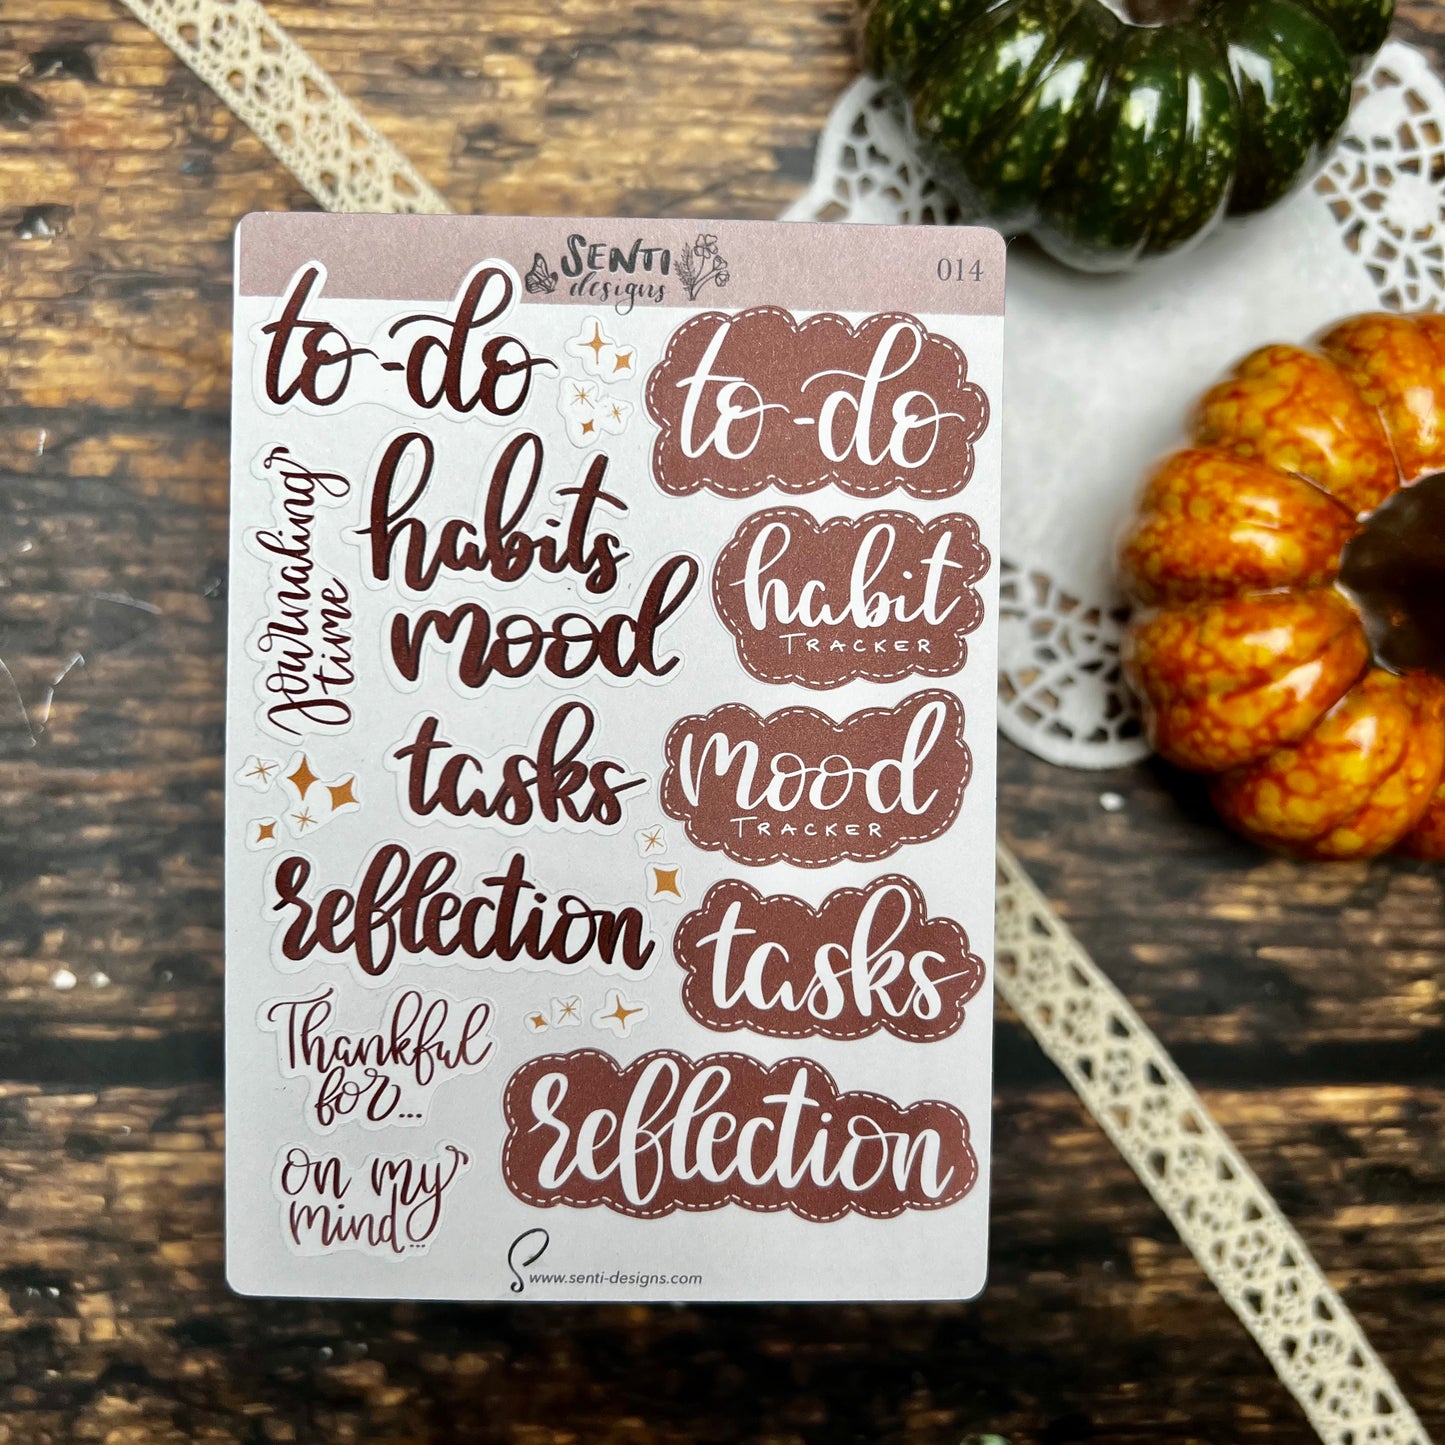 SENTI
designs
014
to-do
to-do
habits
habit
TRACKER
Journaling
time
mood
mood
TRACKER
tasks
tasks
reflection
Thankful
for...
reflection
on my
mind...
S
www.senti-designs.com